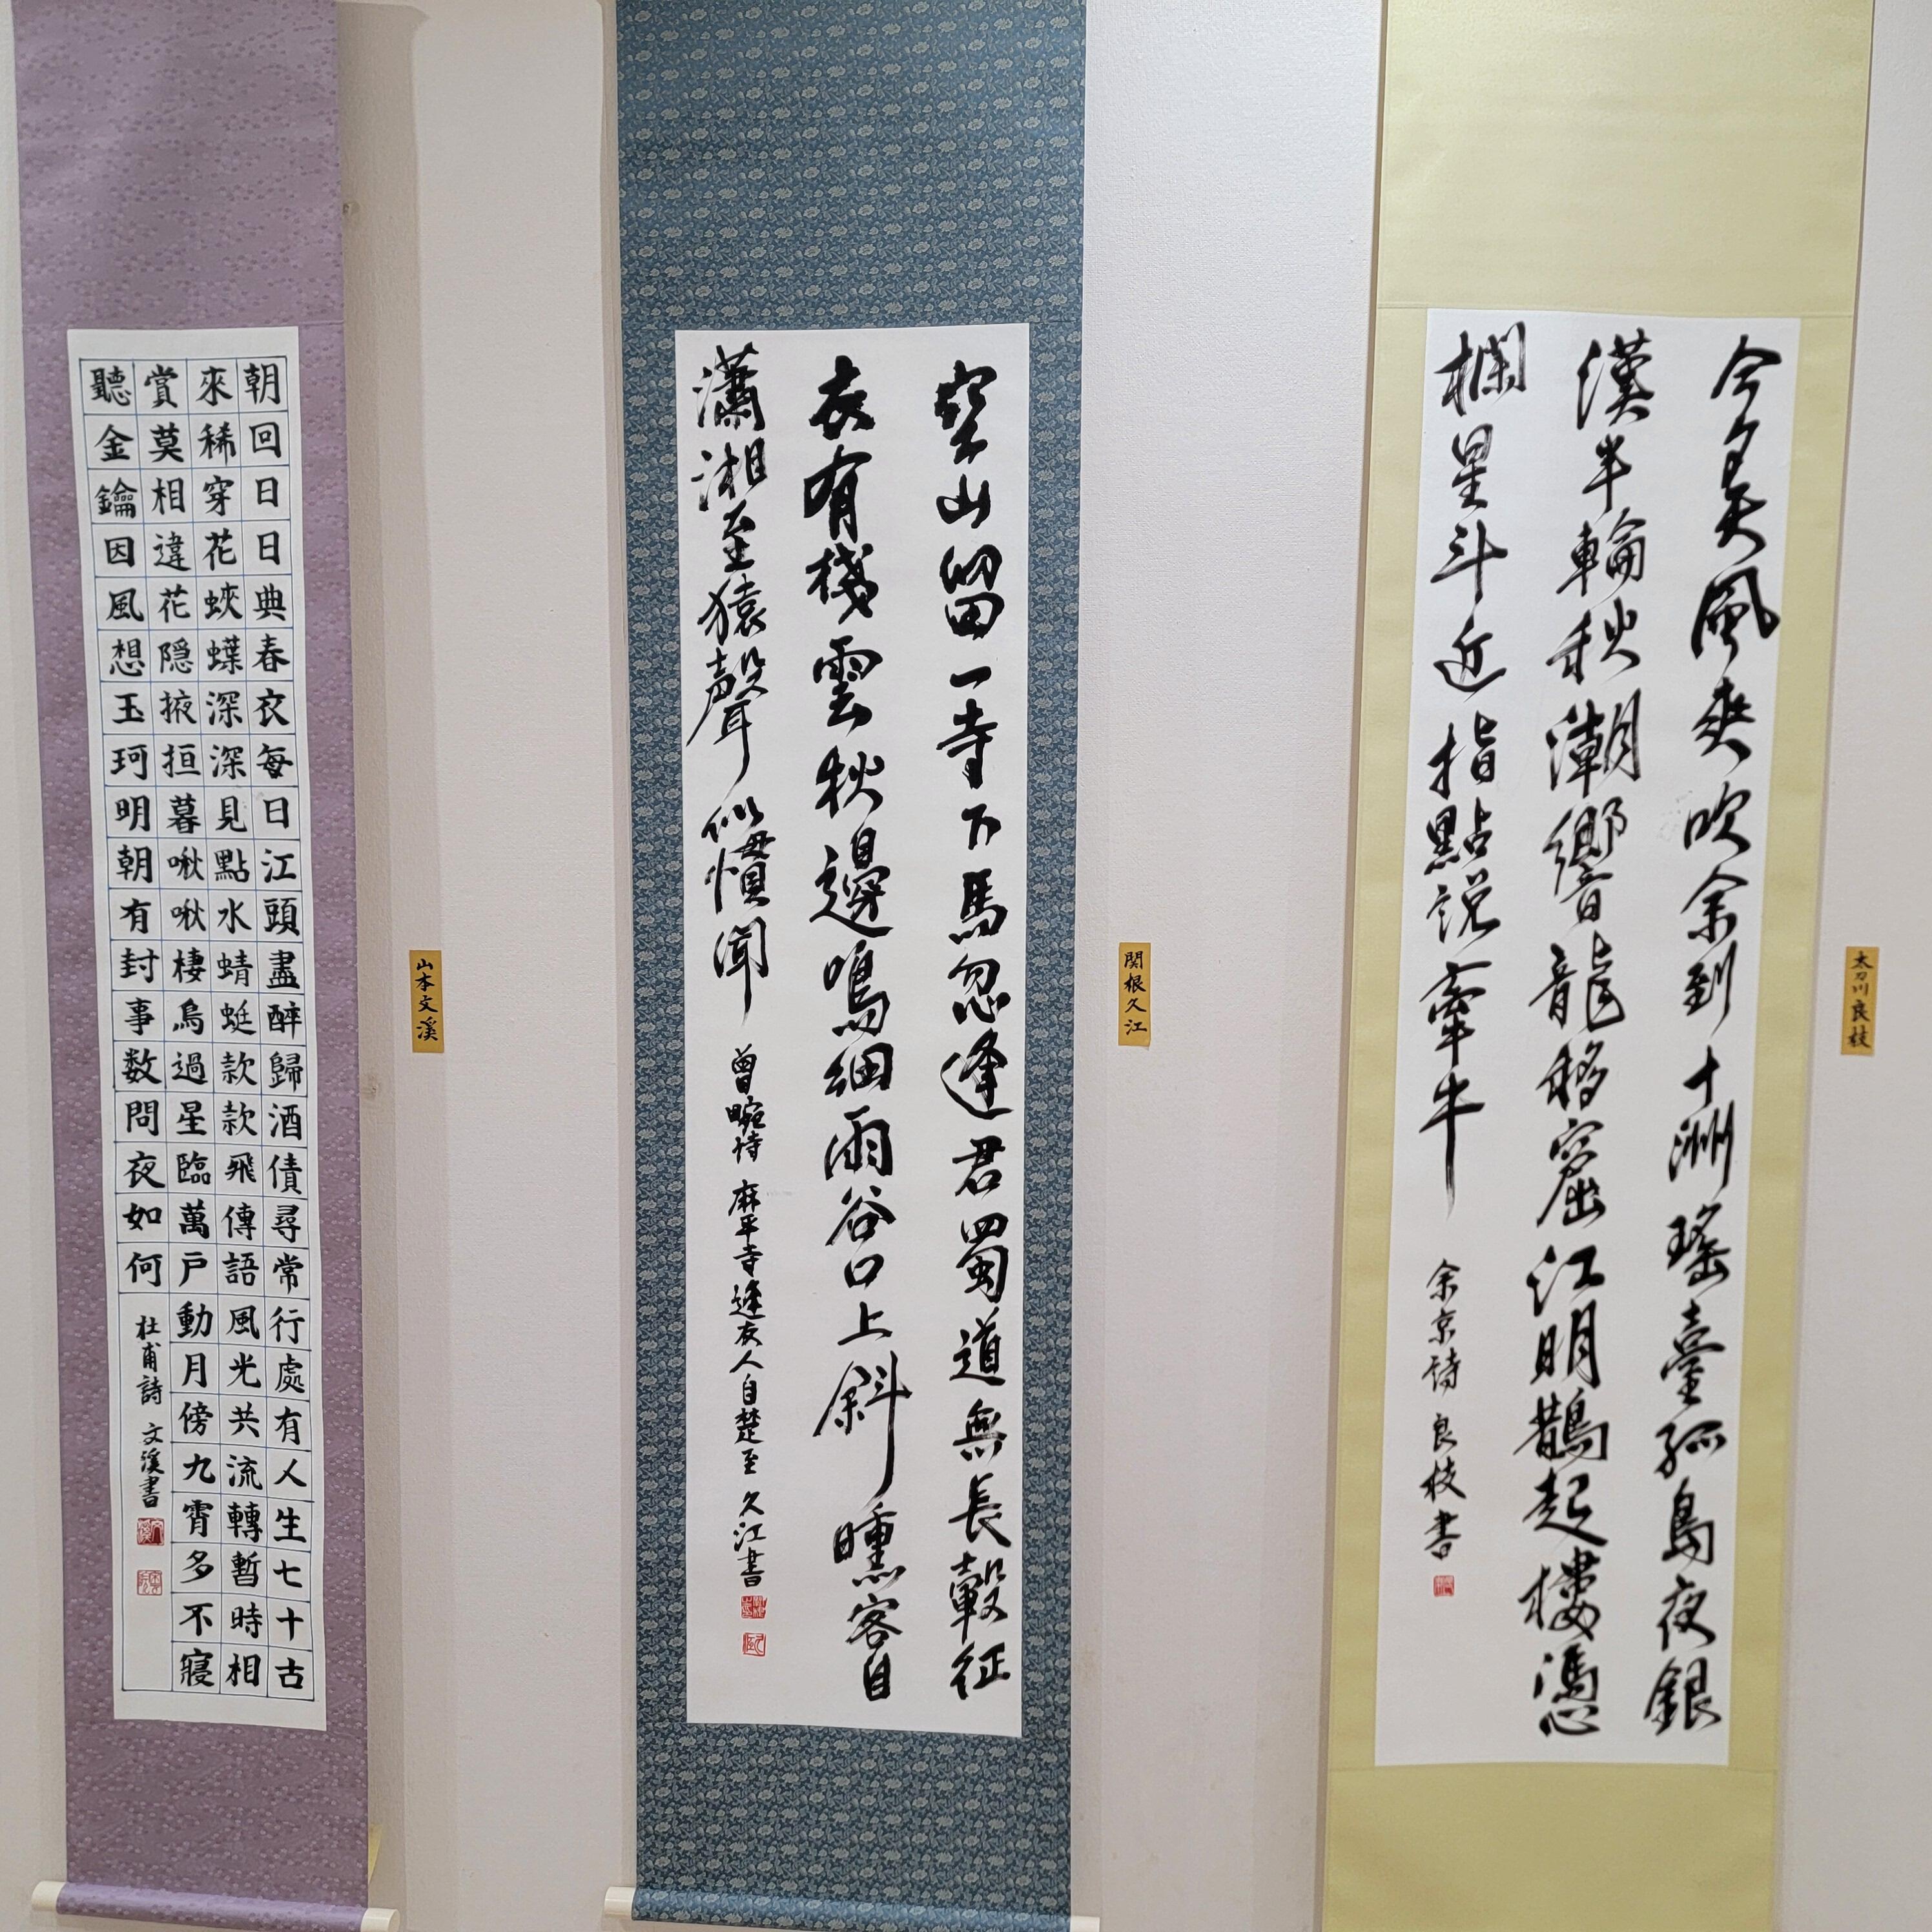 今夕天風爽吹余到十洲瑤臺孤島夜銀
漢半輪秋潮響龍移窟江明鵲起樓憑
欄星斗近指點説牽牛
余京詩 良枝書
太刀川良枝
空山留一寺下馬忽逢君蜀道無長轂征
衣有棧雲秋邊鳴細雨谷口上斜曛客自
瀟湘至猿聲似慣聞
曾畹詩 麻平寺逢友人自楚至 久江書
関根久江
朝回日日典春衣每日江頭盡醉歸酒債尋常行處有人生七十古
來稀穿花蛺蝶深深見點水蜻蜓款款飛傳語風光共流轉暫時相
賞莫相違花隠掖垣暮啾啾棲鳥過星臨萬戸動月傍九霄多不寢
聽金鑰因風想玉珂明朝有封事数問夜如何
杜甫詩 文溪書
山本文溪